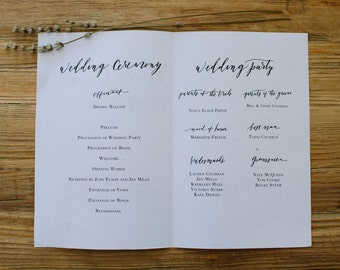 wedding Ceremony
officiant
Denise Mallow
Prelude
Procession of Wedding Party
Procession of Bride
Welcome
Opening Words
Readings by Jude Elliot and Jen Mills
Exchange of Vows
Exchange of Rings
Recessional
wedding party
parents of the bride
Nancy Elson Fritch
parents of the groom
Bill & Cindy Cochran
maid of honor
Meredith Fritch
best man
Todd Cochran
bridesmaids
Lauren Cochran
Jen Mills
Kathleen Hall
Victoria Starr
Kate Dewey
groomsmen
Nate McQueen
Tom Cooke
Rocky Styer